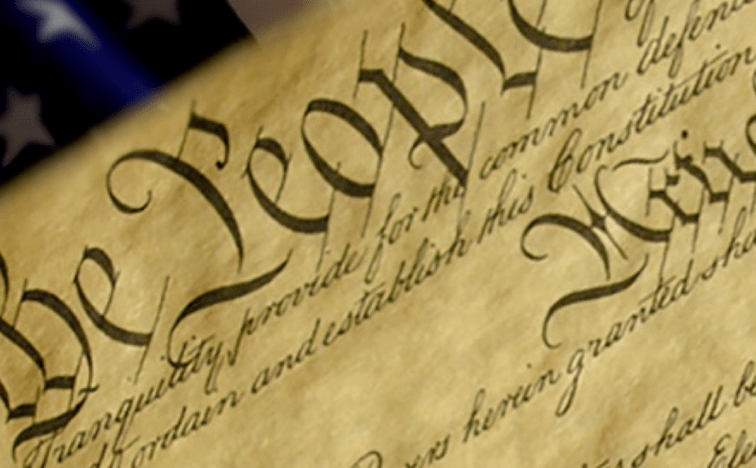 We People
Tranquility, provide for the common defen
d ordain and establish this Constitution
Artic
ers herein granted sha
shall b
Ele